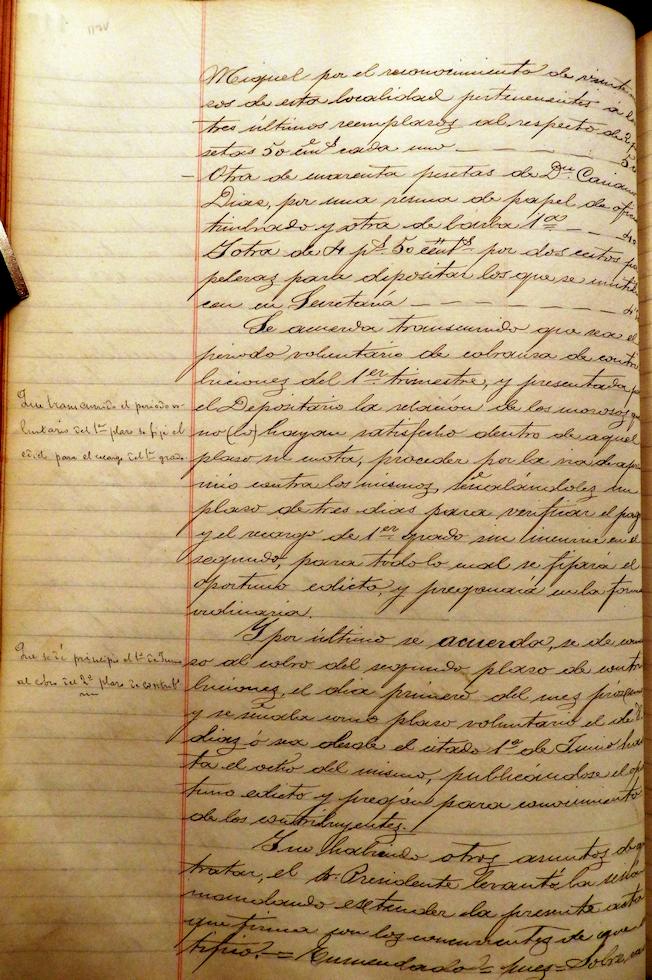 Miguel por el reconocimiento de
sos de esta localidad pertenecientes á
tres últimos reemplazos al respecto de
setas 50 cada uno
Otra de cuarenta pesetas de Dn.
Dias, por una resma de papel de
timbrado y otra de barba 1ª
Y otra de 4 50 por dos cestos
peleras para depositar los que se
cen en Secretaria
Se acuerda transcurrido que sea el
periodo voluntario de cobranza de contri
buciones del 1er trimestre, y presentada
el Depositario la relación de los morosos
no (lo) hayan satisfecho dentro de aquel
plaso su cuota, proceder por la via de apre
mio contra los mismos, señalándoles un
plaso de tres dias para verificar el pag
y el recargo de 1er grado sin incurrir en el
segundo, para todo lo cual se fijará el
oportuno edicto, y pregonará en la forma
ordinaria.
Que transcurrido el periodo vo
luntario del 1er plaso se fije el
edicto para el recargo del 1er grado
Y por último se acuerda, se de
so al cobro del segundo plaso de contri
buciones, el dia primero del mes
y se señala como plaso voluntario el de 8
dias ó sea desde el citado 1º de Junio has
ta el ocho del mismo, publicándose el opor
tuno edicto y pregón para conocimiento
de los contribuyentes.
Que se dé principio el 1º de Junio
al cobro del 2º plaso de
Y no habiendo otros asuntos de q
tratar, el Sr. Presidente levantó la
mandando extender la presente acta
que firma con los concurrentes de que
tifico.= Enmendado = pues = Sobre